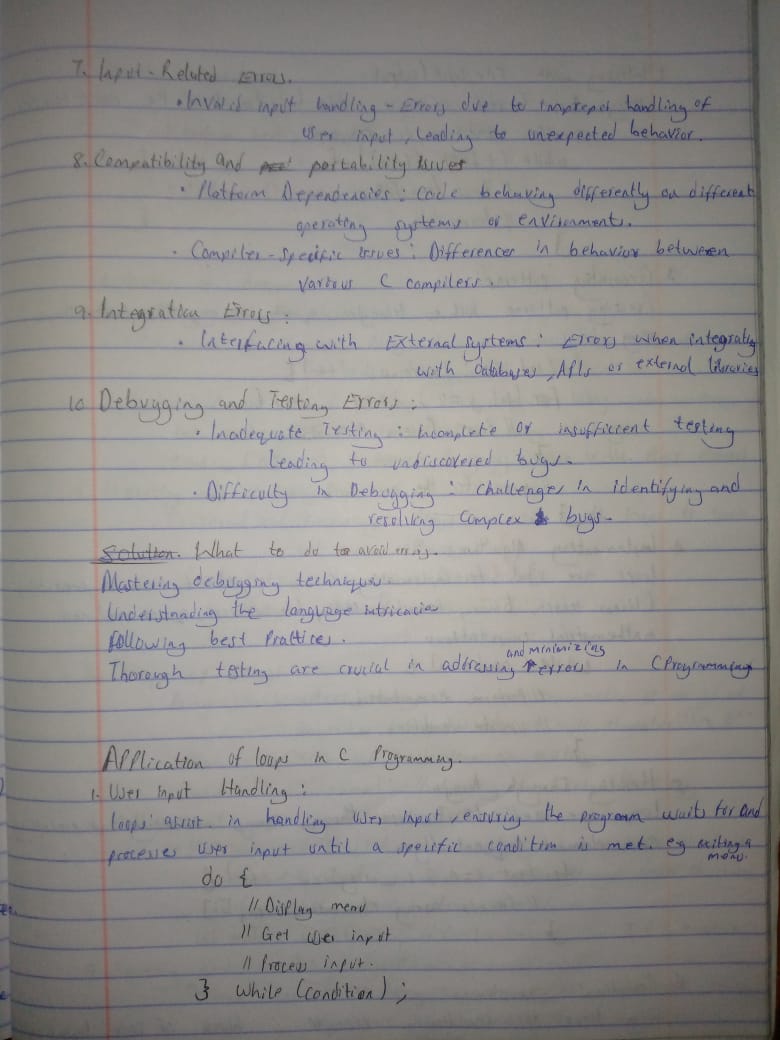 7. Input-Related Errors.
• Invalid input handling - Errors due to improper handling of
user input, leading to unexpected behavior.
8. Compatibility and portability Issues
• Platform Dependencies: Code behaving differently on different
operating systems or environments.
• Compiler-Specific Issues: Differences in behavior between
various C compilers.
9. Integration Errors:
• Interfacing with External Systems: Errors when integrating
with databases, APIs or external libraries
10 Debugging and Testing Errors:
• Inadequate Testing: Incomplete or insufficient testing
leading to undiscovered bugs.
• Difficulty in Debugging: Challenges in identifying and
resolving complex bugs.
Solution. What to do to avoid errors.
Mastering debugging techniques
Understnading the language intricacies
following best Practices.
Thorough testing are crucial in addressing and minimizing errors in C Programming
Application of loops in C Programming.
1. User Input Handling:
loops' assist in handling user input, ensuring the program waits for and
processes user input until a specific condition is met. eg exiting a
menu.
do {
// Display menu
// Get user input
// Process input.
} while (condition);